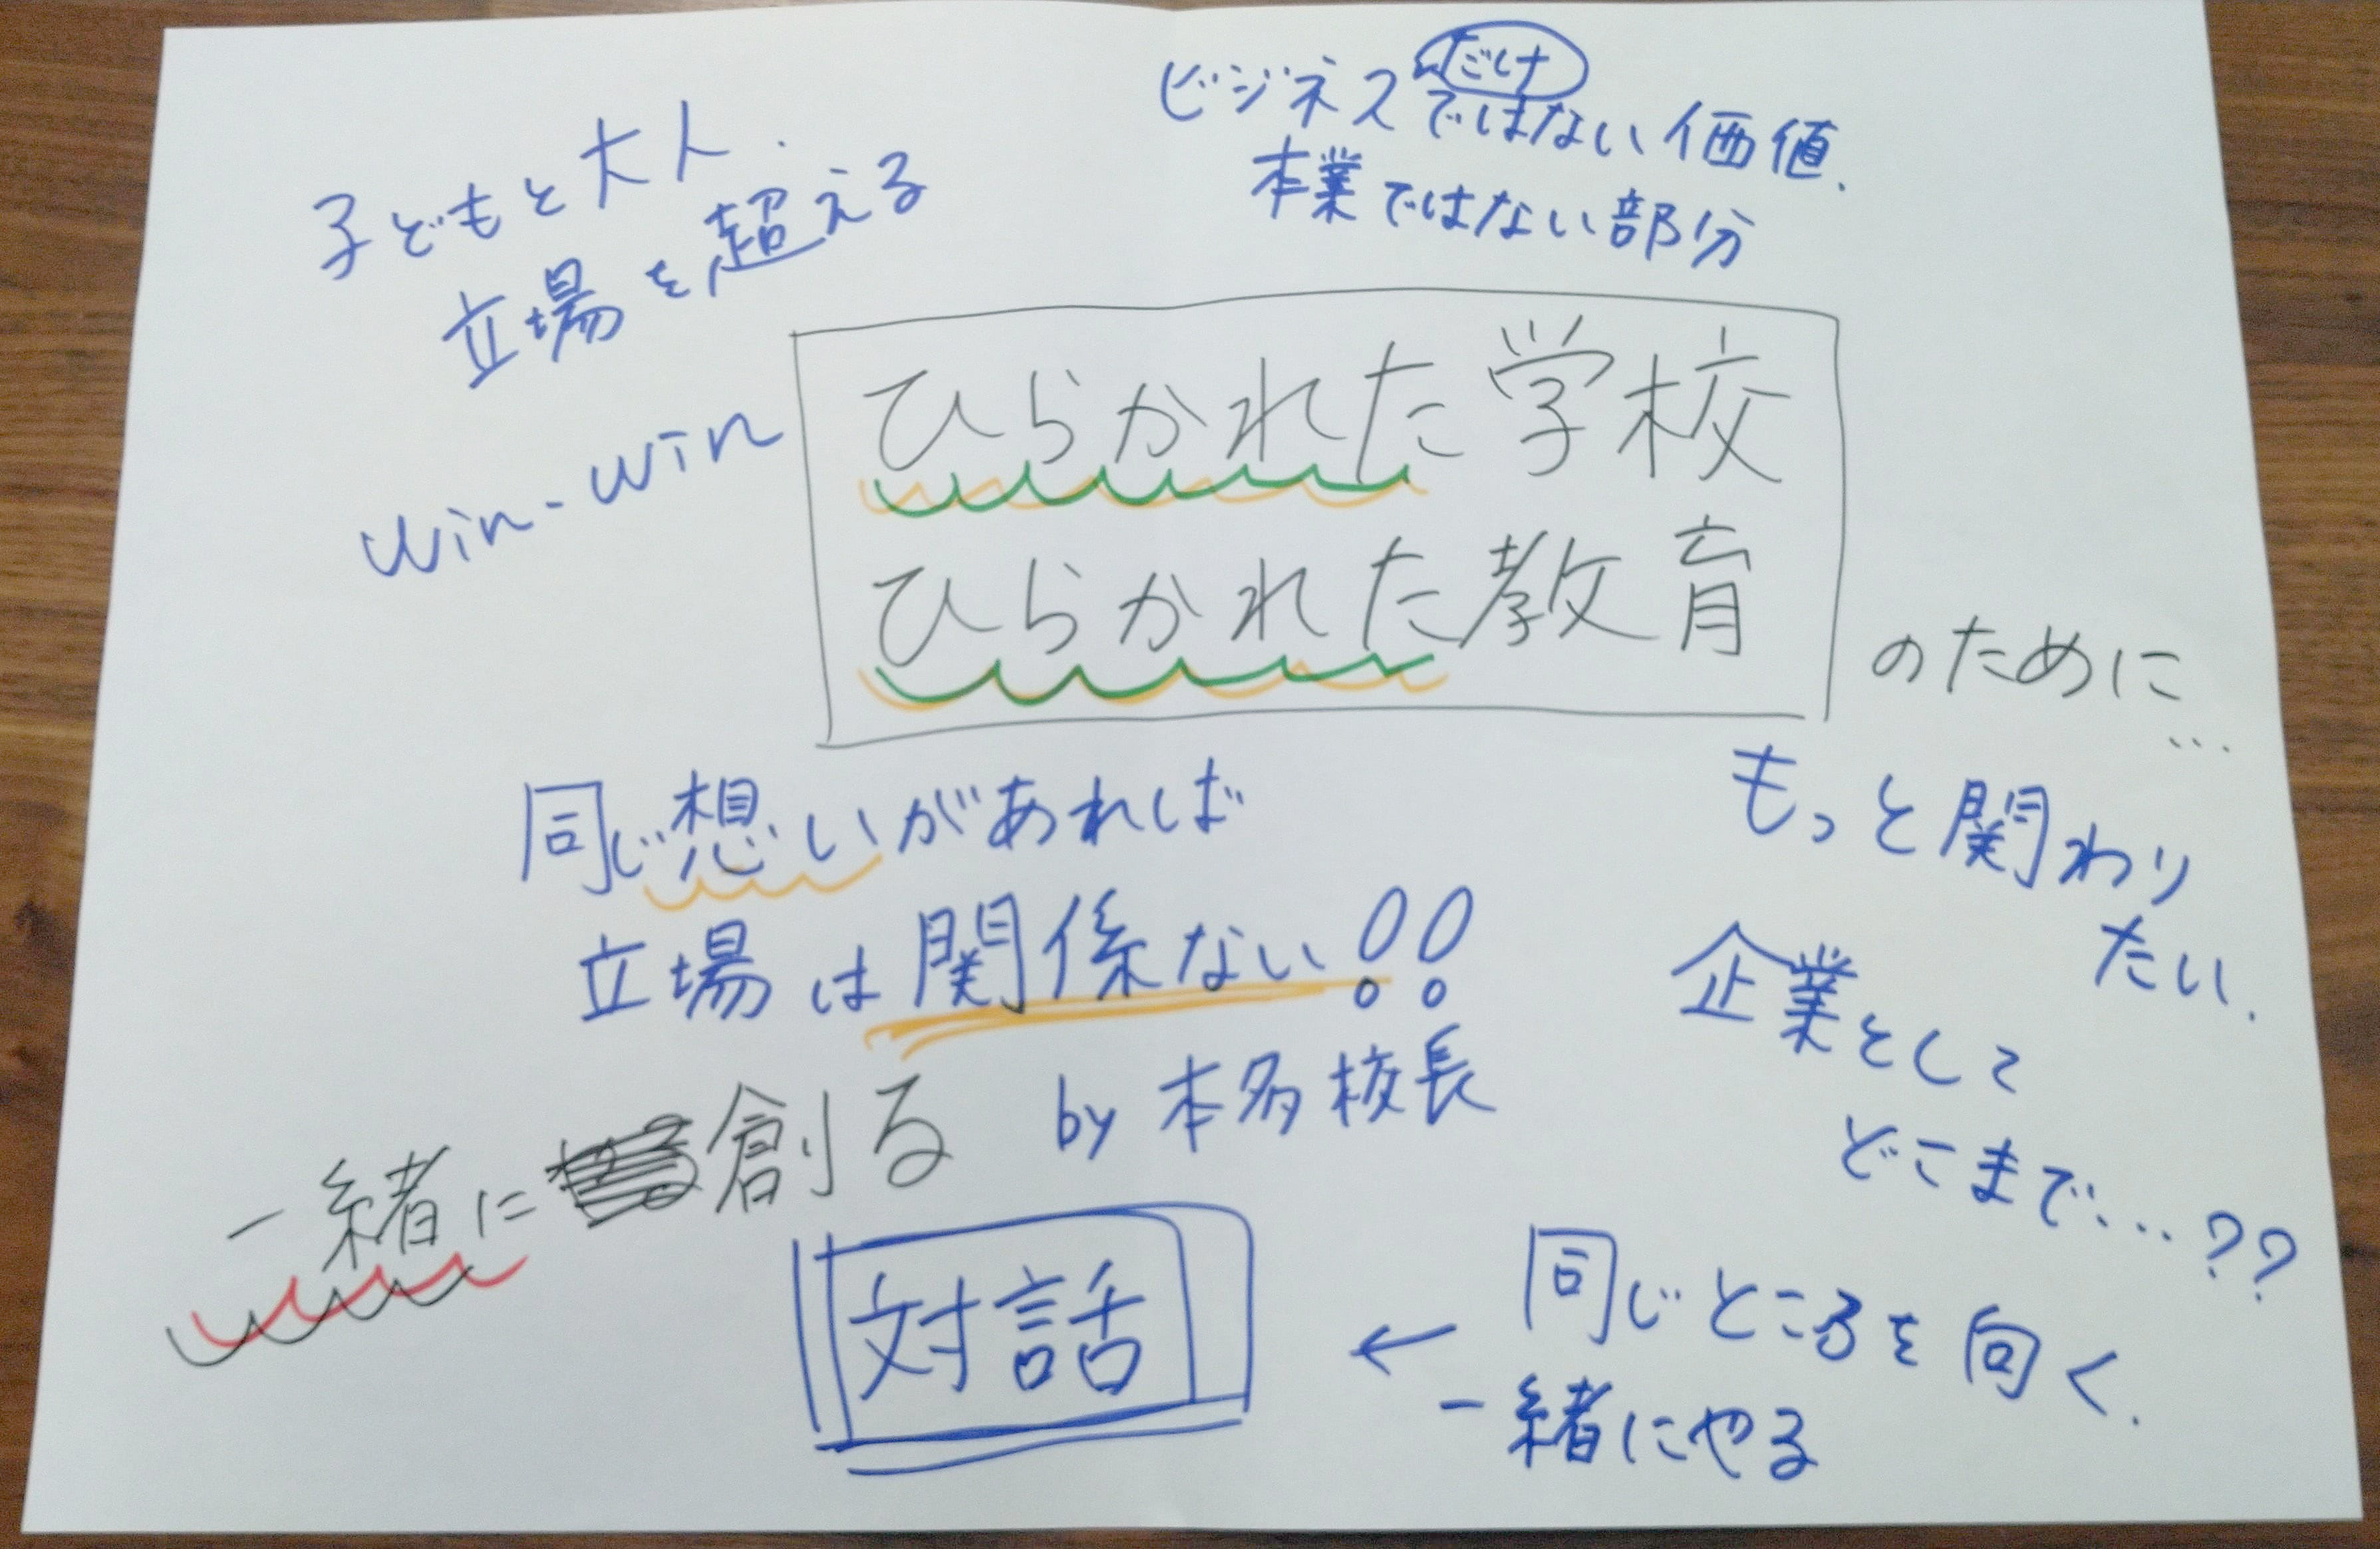 子どもと大人.
立場を超える
win-win
ビジネスだけではない価値.
本業ではない部分
ひらかれた学校
ひらかれた教育
のために
...
もっと関わり
たい.
企業として
どこまで...??
同じ想いがあれば
立場は関係ない!!
by 本多校長
一緒に創る
対話
← 同じところを向く.
一緒にやる